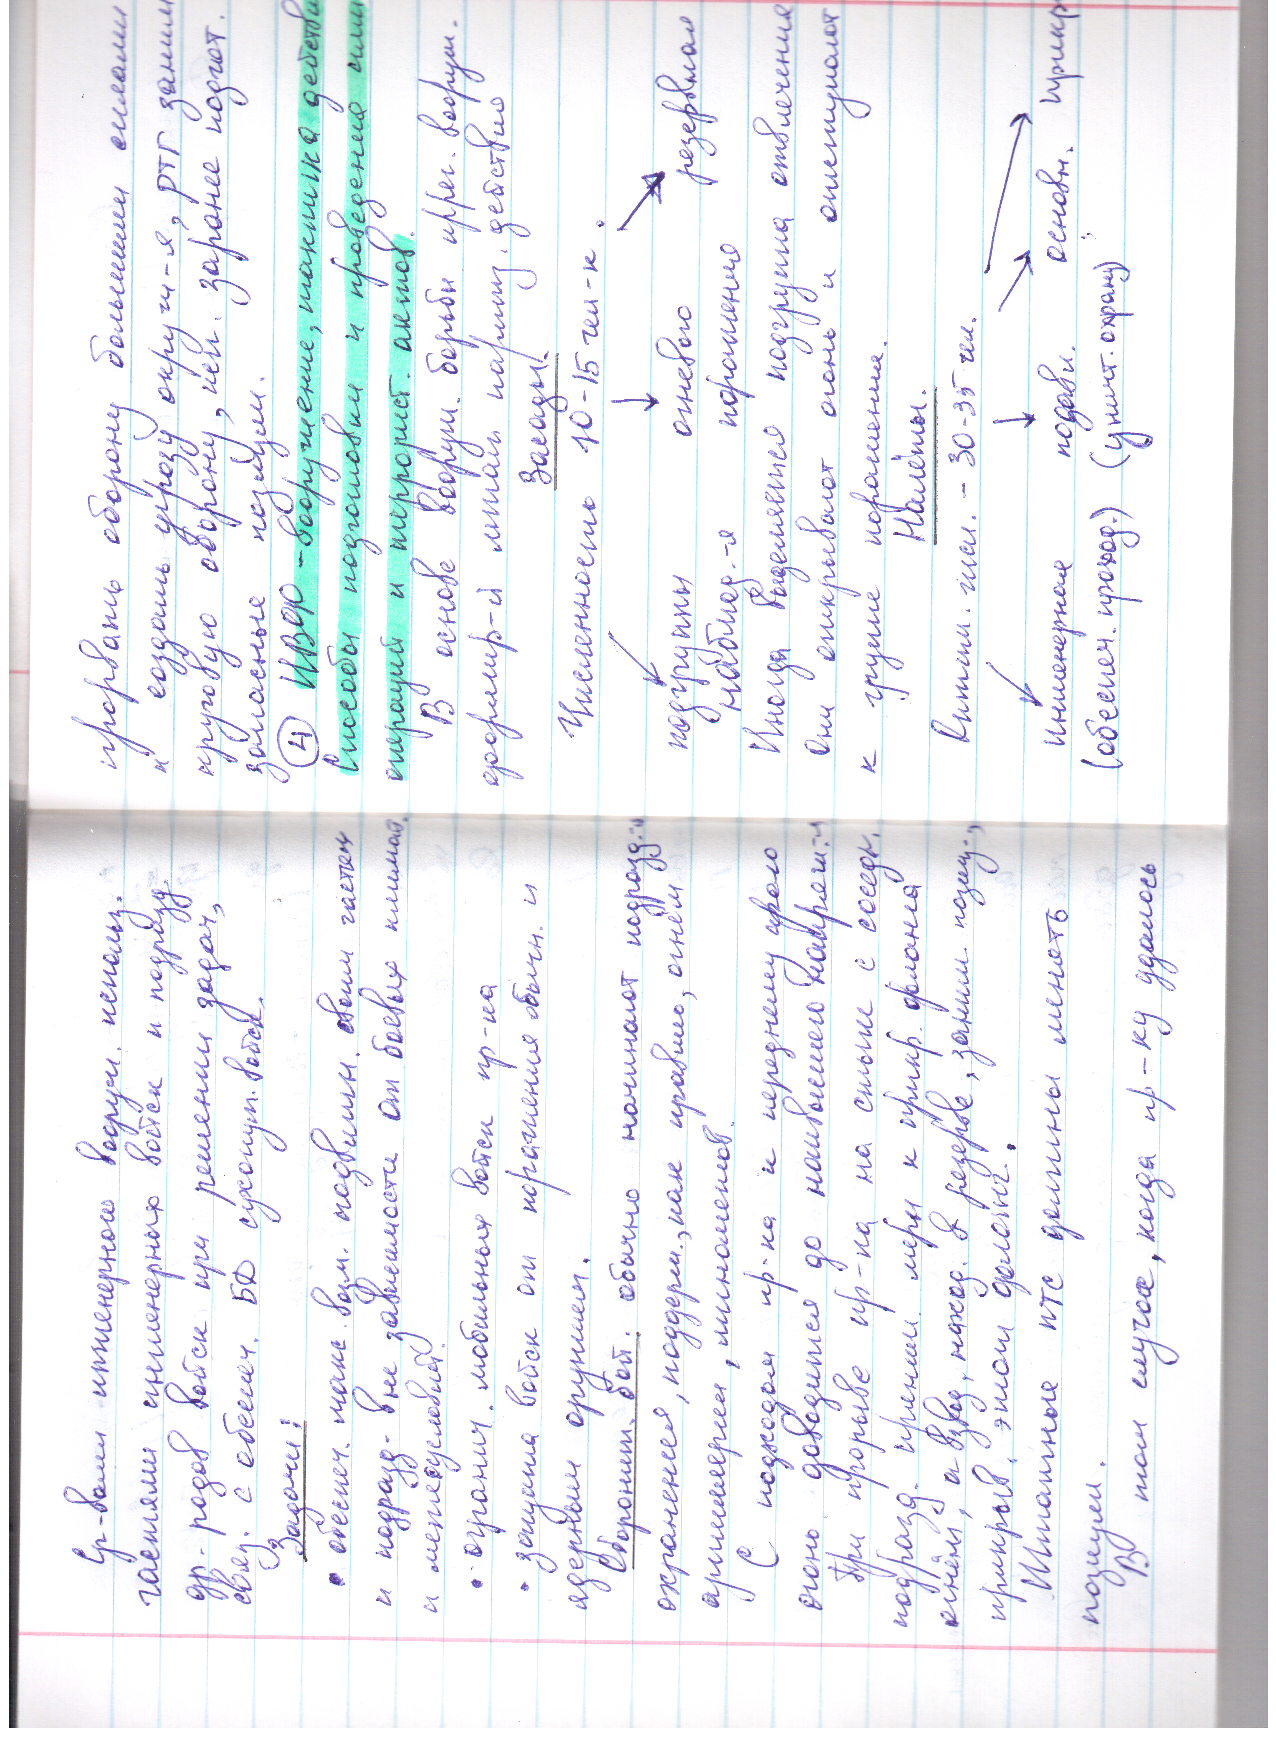 Ср-вами инженерного вооруж. использ.
частями инженерных войск и подразд.
др. родов войск при решении задач,
связ. с обеспеч. БД сухопут. войск.
Задачи:
• обеспеч. макс. возм. подвижн. своим частям
и подразд. вне зависимости от боевых климат.
и метеоусловий.
• огранич. мобильных войск пр-ка
• защита войск от поражения обычн. и
ядерным оружием.
Оборонит. бой. обычно начинают подразд-я
охранения, поддерж., как правило, огнём
артиллерии, миномётов.
С подходом пр-ка и переднему краю
огонь доводится до наивысшего напряж-я
При прорыве пр-ка на стыке с соседн.
подразд. приним. меры к прикр. фланга
огнём, а взвод, наход. в резерве, заним. позиц.,
прикрыв. этот фланг.
Штатные ПТС должны менять
позиции.
В том случае, когда пр-ку удалось
прорвать оборону большими силами
и создать угрозу окруж-я, РТГ заним
круговую оборону, исп. заранее подгот.
запасные позиции.
4 ИВФ - вооружение, тактика действи
Способы подготовки и проведения
операций и террорист. актов.
В основе вооруж. борьбы ирег. вооруж.
формир-й лежат партиз. действия
Засады.
Численность 10-15 чел-к.
подгруппы огневого резервная
наблюд-я поражения
Иногда выделяется подгруппа отвлечения
Они открывают огонь и отступают
к группе поражения.
Налёты.
Оптим. числ. - 30-35 чел.
Инженерная подавл. основн. прикр
(обеспеч. проход.) (уничт. охрану)